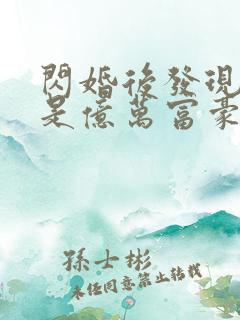 閃婚後發現
是億萬富豪
孫士彬
未經同意禁止轉載